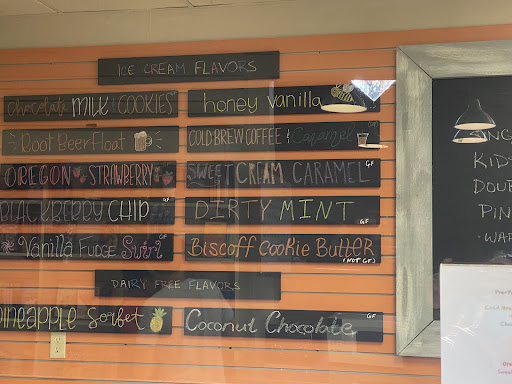 ICE CREAM FLAVORS
Chocolate MILK & COOKIES
honey vanilla
Root Beer Float
COLD BREW COFFEE & Caramel
OREGON STRAWBERRY
SWEET CREAM CARAMEL GF
BLACKBERRY CHIP GF
DIRTY MINT GF
Vanilla FUDGE Swirl GF
Biscoff Cookie Butter
(NOT GF)
DAIRY FREE FLAVORS
Pineapple Sorbet
Coconut Chocolate GF
SING
KIDS
DOU
PIN